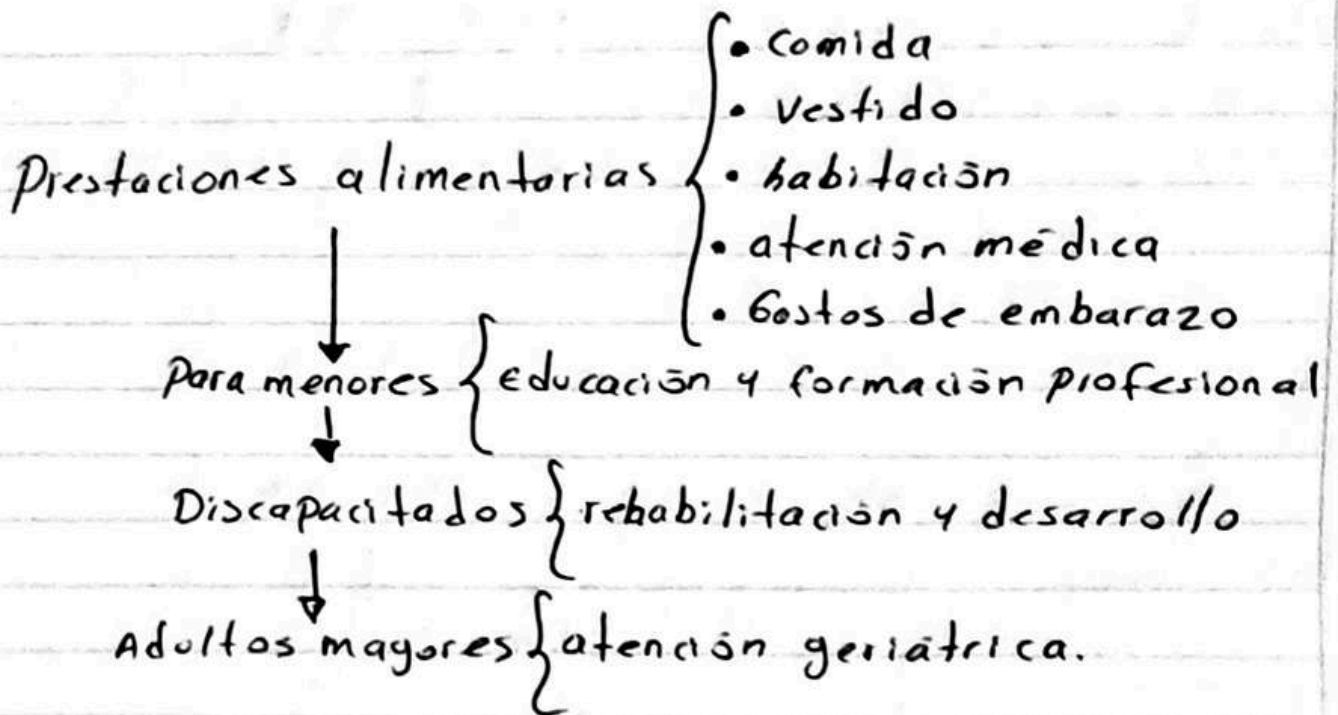 • Comida
• Vestido
Prestaciones alimentarias • habitación
• atención médica
• Gastos de embarazo
Para menores Educación y formación profesional
Discapacitados rehabilitación y desarrollo
Adultos mayores atención geriátrica.